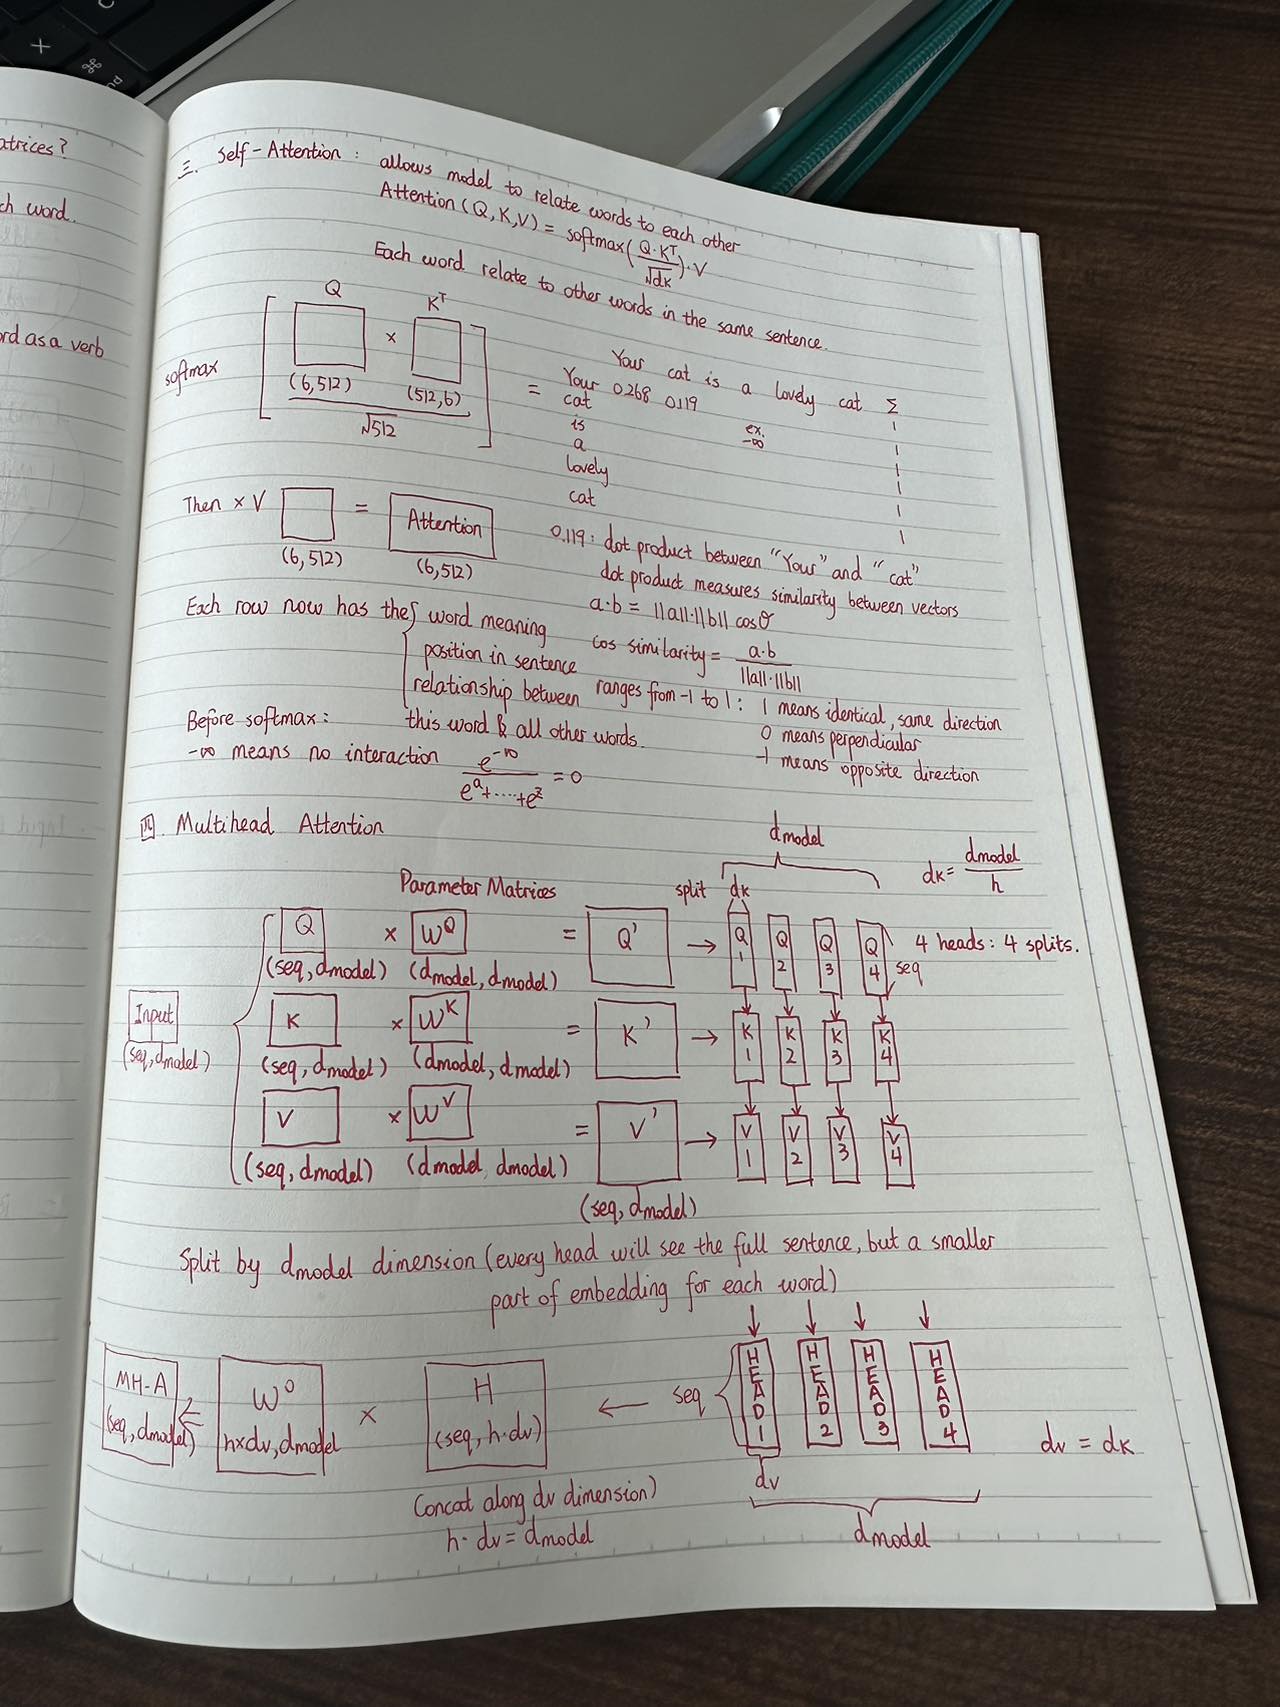 atrices?
ch word.
ord as a verb
三. Self-Attention : allows model to relate words to each other
Attention (Q,K,V) = softmax(Q·Kᵀ/√dk)·V
Each word relate to other words in the same sentence.
softmax [ Q (6,512) × Kᵀ (512,6) / √512 ] =
Your cat is a lovely cat Σ
Your 0.268 0.119 1
cat ex. -∞ 1
is 1
a 1
lovely 1
cat 1
Then × V (6,512) = Attention (6,512)
0.119 : dot product between "Your" and "cat"
dot product measures similarity between vectors
a·b = ||a||·||b|| cosθ
cos similarity = a·b / ||a||·||b||
ranges from -1 to 1 : 1 means identical, same direction
0 means perpendicular
-1 means opposite direction
Each row now has the { word meaning
position in sentence
relationship between
this word & all other words.
Before softmax :
-∞ means no interaction e^-∞ / e^a+·····+e^z = 0
四. Multihead Attention
dmodel
dk = dmodel / h
Parameter Matrices split dk
Q × W^Q = Q' → Q1 Q2 Q3 Q4 4 heads : 4 splits.
(seq, dmodel) (dmodel, dmodel) seq
Input
(seq, dmodel)
K × W^K = K' → K1 K2 K3 K4
(seq, dmodel) (dmodel, dmodel)
V × W^V = V' → V1 V2 V3 V4
(seq, dmodel) (dmodel, dmodel)
(seq, dmodel)
Split by dmodel dimension (every head will see the full sentence, but a smaller
part of embedding for each word)
MH-A (seq, dmodel) ⇐ W^O h×dv, dmodel × H (seq, h·dv) ← seq { HEAD1 HEAD2 HEAD3 HEAD4
dv = dk
dv
dmodel
Concat along dv dimension)
h· dv = dmodel